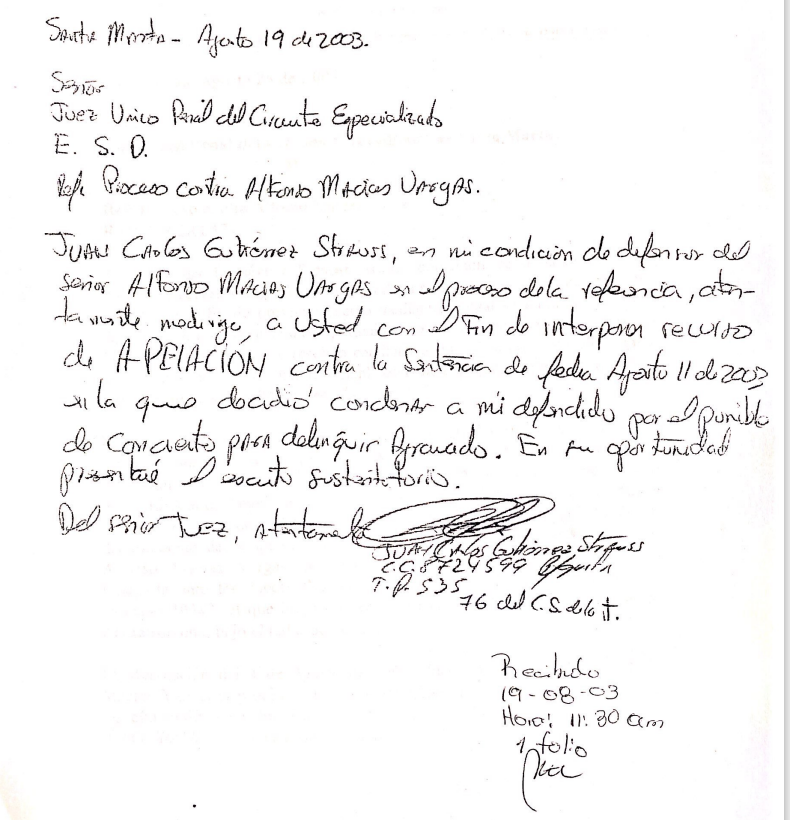 Santa Marta - Agosto 19 de 2003.
Señor
Juez Unico Penal del Circuito Especializado
E. S. D.
Ref: Proceso contra Alfonso Macias Vargas.
JUAN Carlos Gutiérrez Strauss, en mi condición de defensor del
señor Alfonso Macias Vargas en el proceso de la referencia, aten-
tamente me dirijo a Usted con el Fin de interponer recurso
de APELACIÓN contra la Sentencia de fecha Agosto 11 de 2003
en la que decidió condenar a mi defendido por el punible
de Concierto para delinquir Agravado. En su oportunidad
presentaré el escrito sustentatorio.
Del señor Juez, Atentamente
JUAN Carlos Gutiérrez Strauss
C.C. 8724599
T.P. 535
76 del C.S. de la J.
Recibido
19-08-03
Hora: 11:30 am
1 folio